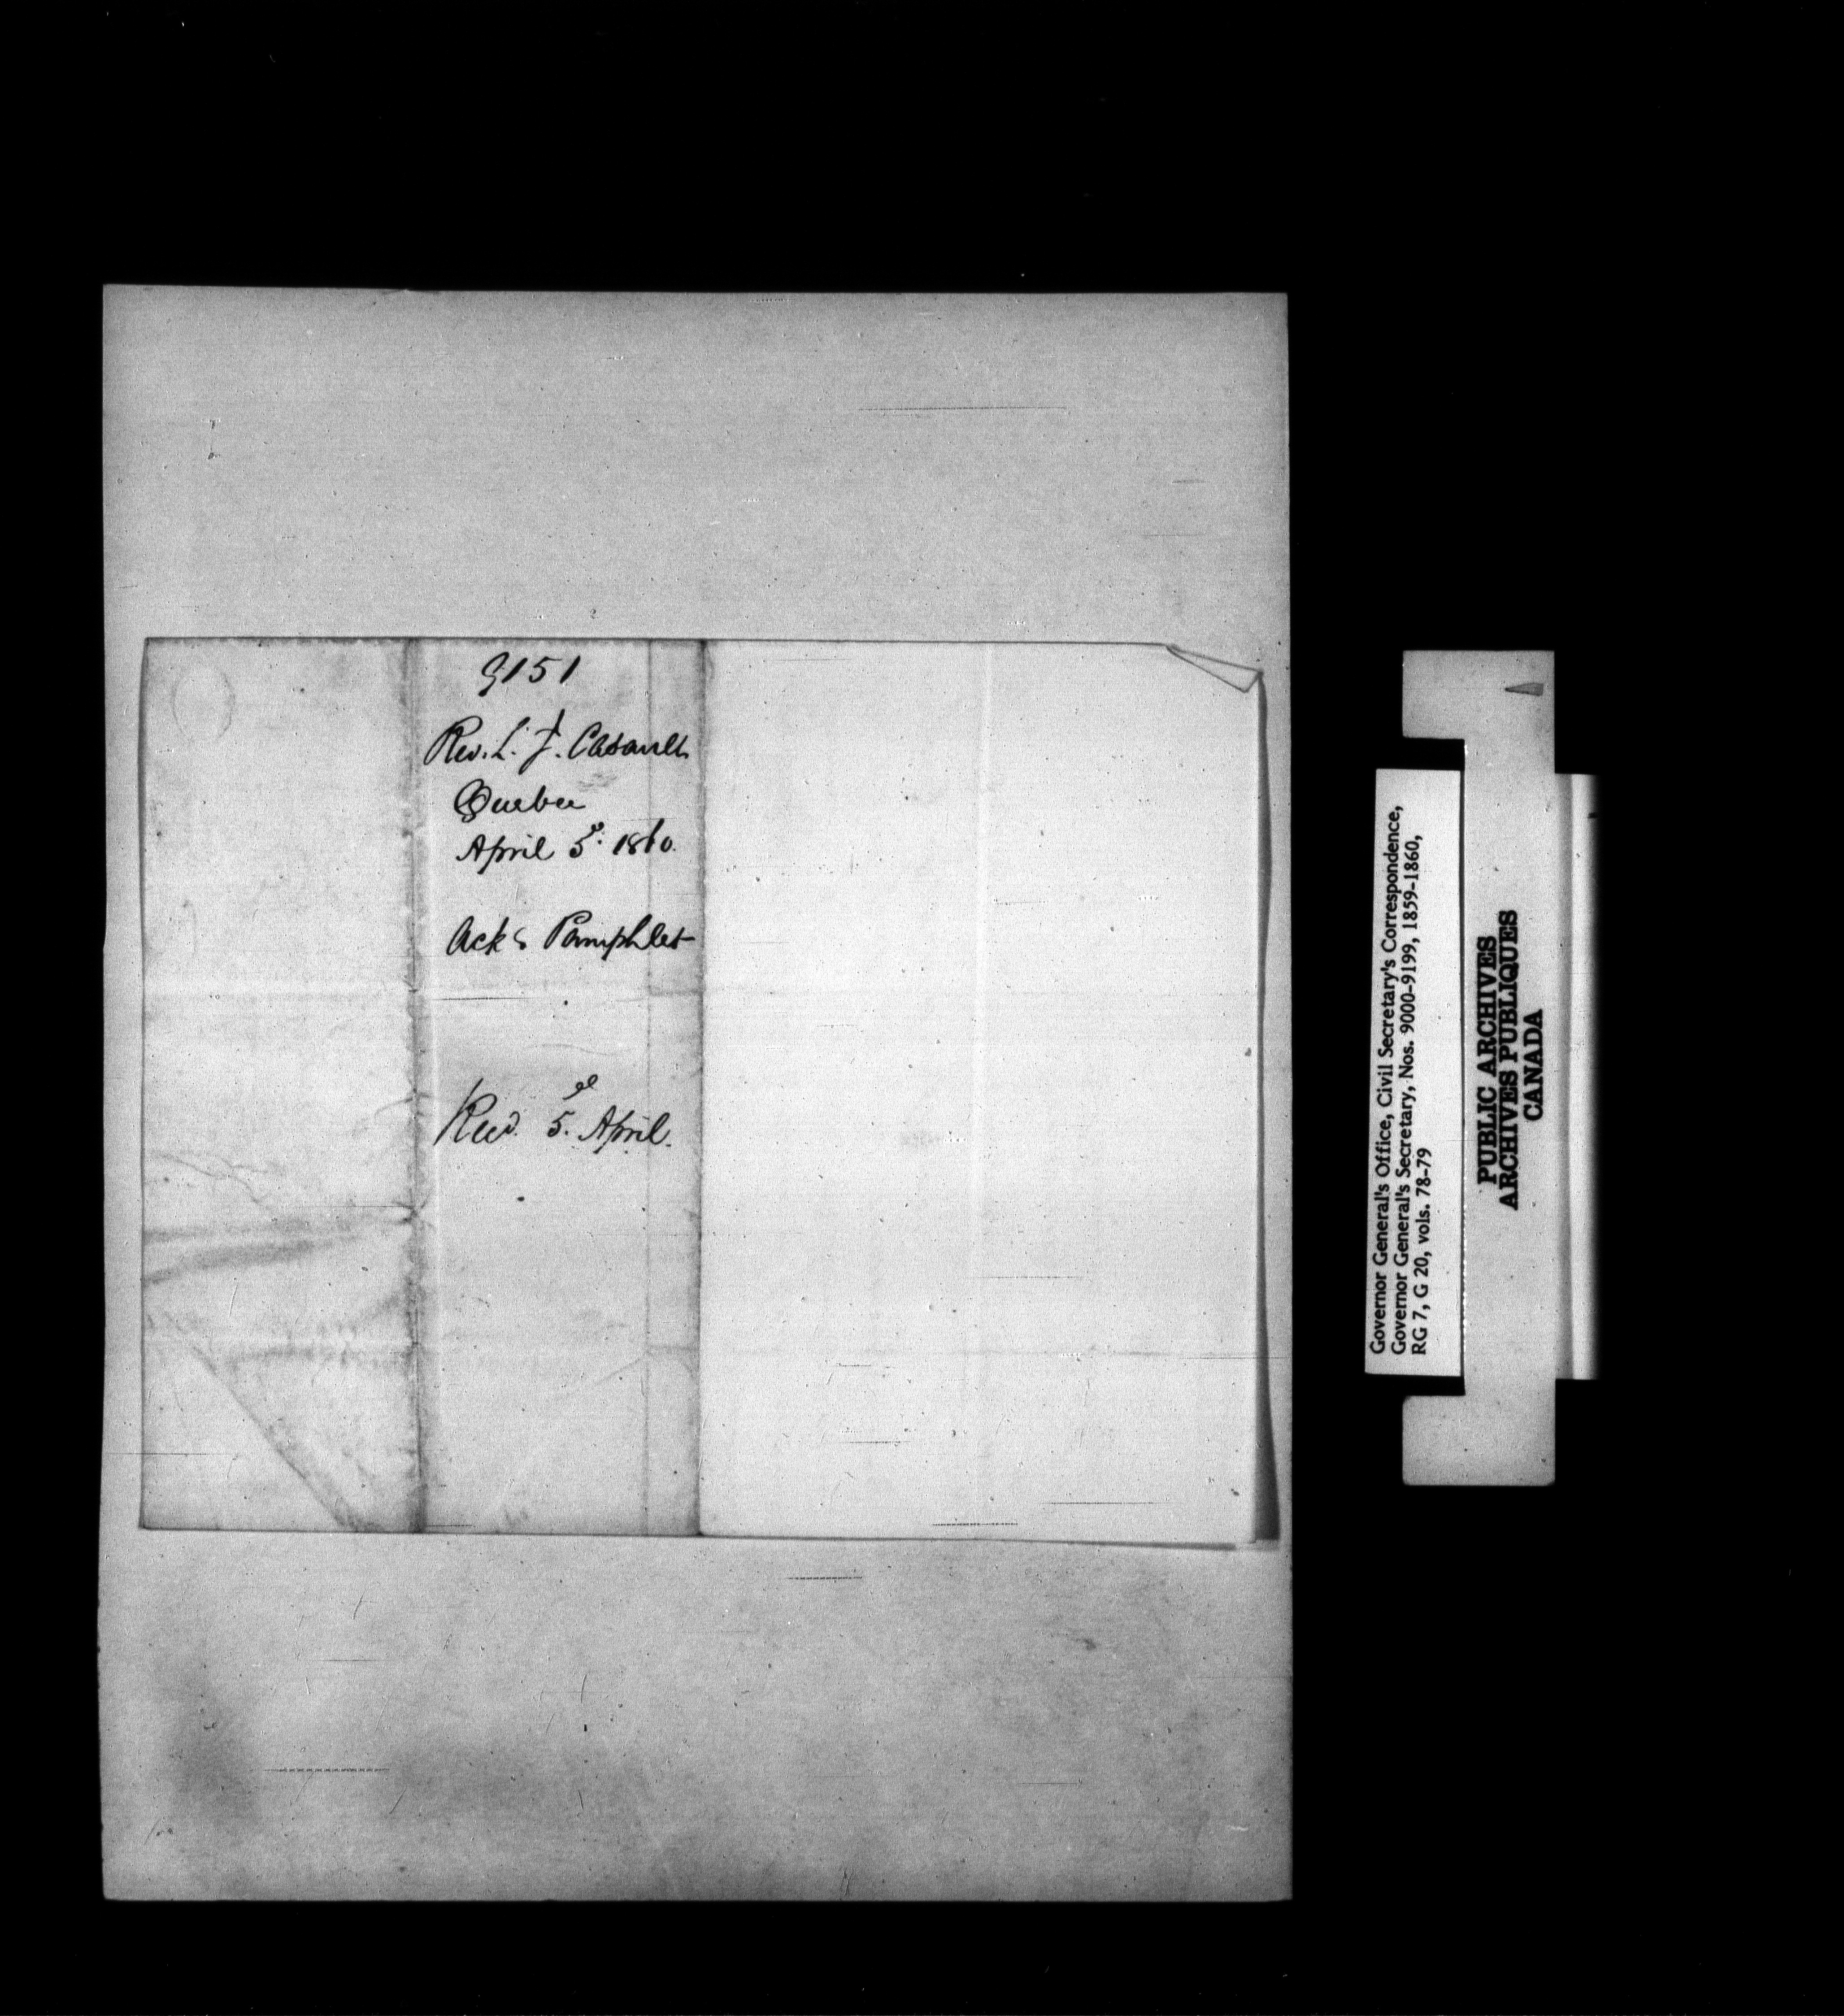 9151
Rev. L. J. Casault
Quebec
April 5th 1860.
Acks Pamphlet
Recd. 5. April.
Governor General's Office, Civil Secretary's Correspondence,
Governor General's Secretary, Nos. 9000-9199, 1859-1860,
RG 7, G 20, vols. 78-79
PUBLIC ARCHIVES
ARCHIVES PUBLIQUES
CANADA